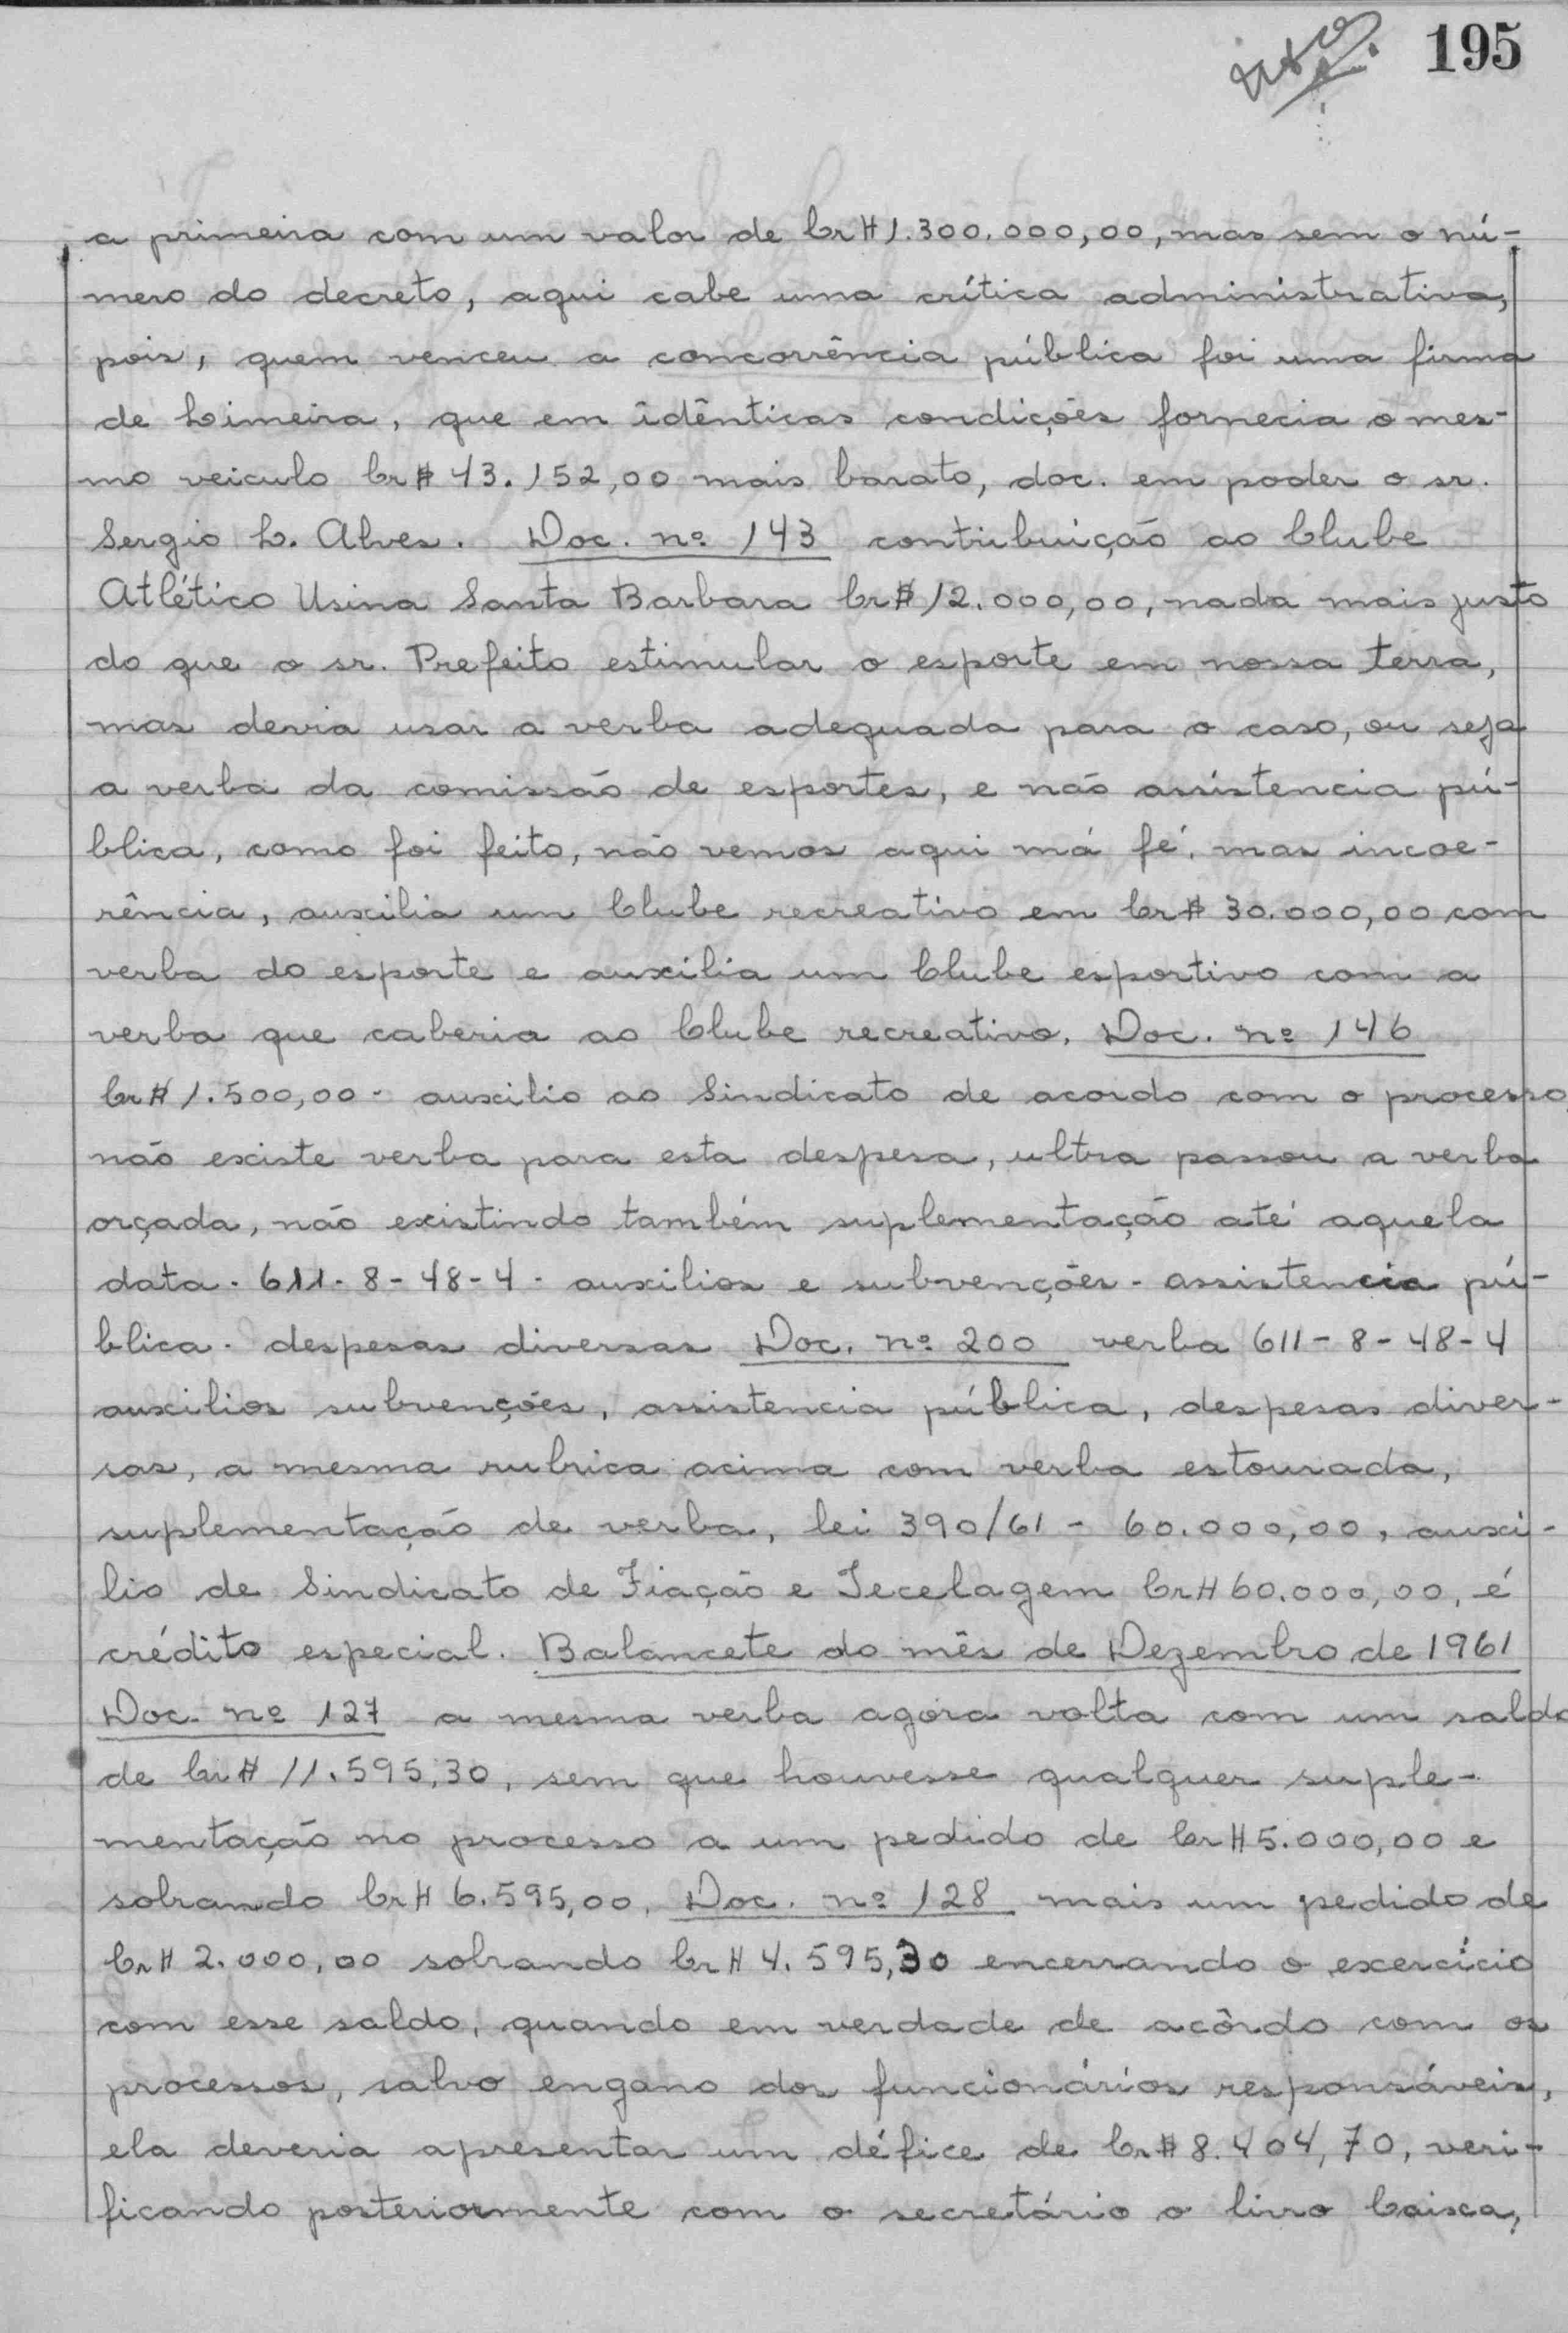 195
a primeira com um valor de Cr$ 1.300.000,00, mas sem o nú-
mero do decreto, aqui cabe uma crítica administrativa,
pois, quem venceu a concorrência pública foi uma firma
de Limeira, que em idênticas condições fornecia o mes-
mo veiculo Cr$ 43.152,00 mais barato, doc. em poder o sr.
Sergio L. Alves. Doc. nº 143 contribuição ao Clube
Atlético Usina Santa Barbara Cr$ 12.000,00, nada mais justo
do que o sr. Prefeito estimular o esporte em nossa terra,
mas devia usar a verba adequada para o caso, ou seja
a verba da comissão de esportes, e não assistencia pú-
blica, como foi feito, não vemos aqui má fé, mas incoe-
rência, auxilia um Clube recreativo em Cr$ 30.000,00 com
verba do esporte e auxilia um Clube esportivo com a
verba que caberia ao Clube recreativo. Doc. nº 146
Cr$ 1.500,00 - auxilio ao Sindicato de acordo com o processo
não existe verba para esta despesa, ultra passou a verba
orçada, não existindo também suplementação até aquela
data - 611-8-48-4 - auxilios e subvenções - assistencia pú-
blica - despesas diversas Doc. nº 200 verba 611-8-48-4
auxilios subvenções, assistencia pública, despesas diver-
sas, a mesma rubrica acima com verba estourada,
suplementação de verba, lei 390/61 - 60.000,00, auxi-
lio de Sindicato de Fiação e Tecelagem Cr$ 60.000,00, é
crédito especial. Balancete do mês de Dezembro de 1961
Doc. nº 127 a mesma verba agora volta com um saldo
de Cr$ 11.595,30, sem que houvesse qualquer suple-
mentação no processo a um pedido de Cr$ 5.000,00 e
sobrando Cr$ 6.595,00. Doc. nº 128 mais um pedido de
Cr$ 2.000,00 sobrando Cr$ 4.595,30 encerrando o exercício
com esse saldo, quando em verdade de acôrdo com os
processos, salvo engano dos funcionários responsáveis,
ela deveria apresentar um défice de Cr$ 8.404,70, veri-
ficando posteriormente com o secretário o livro Caixa,